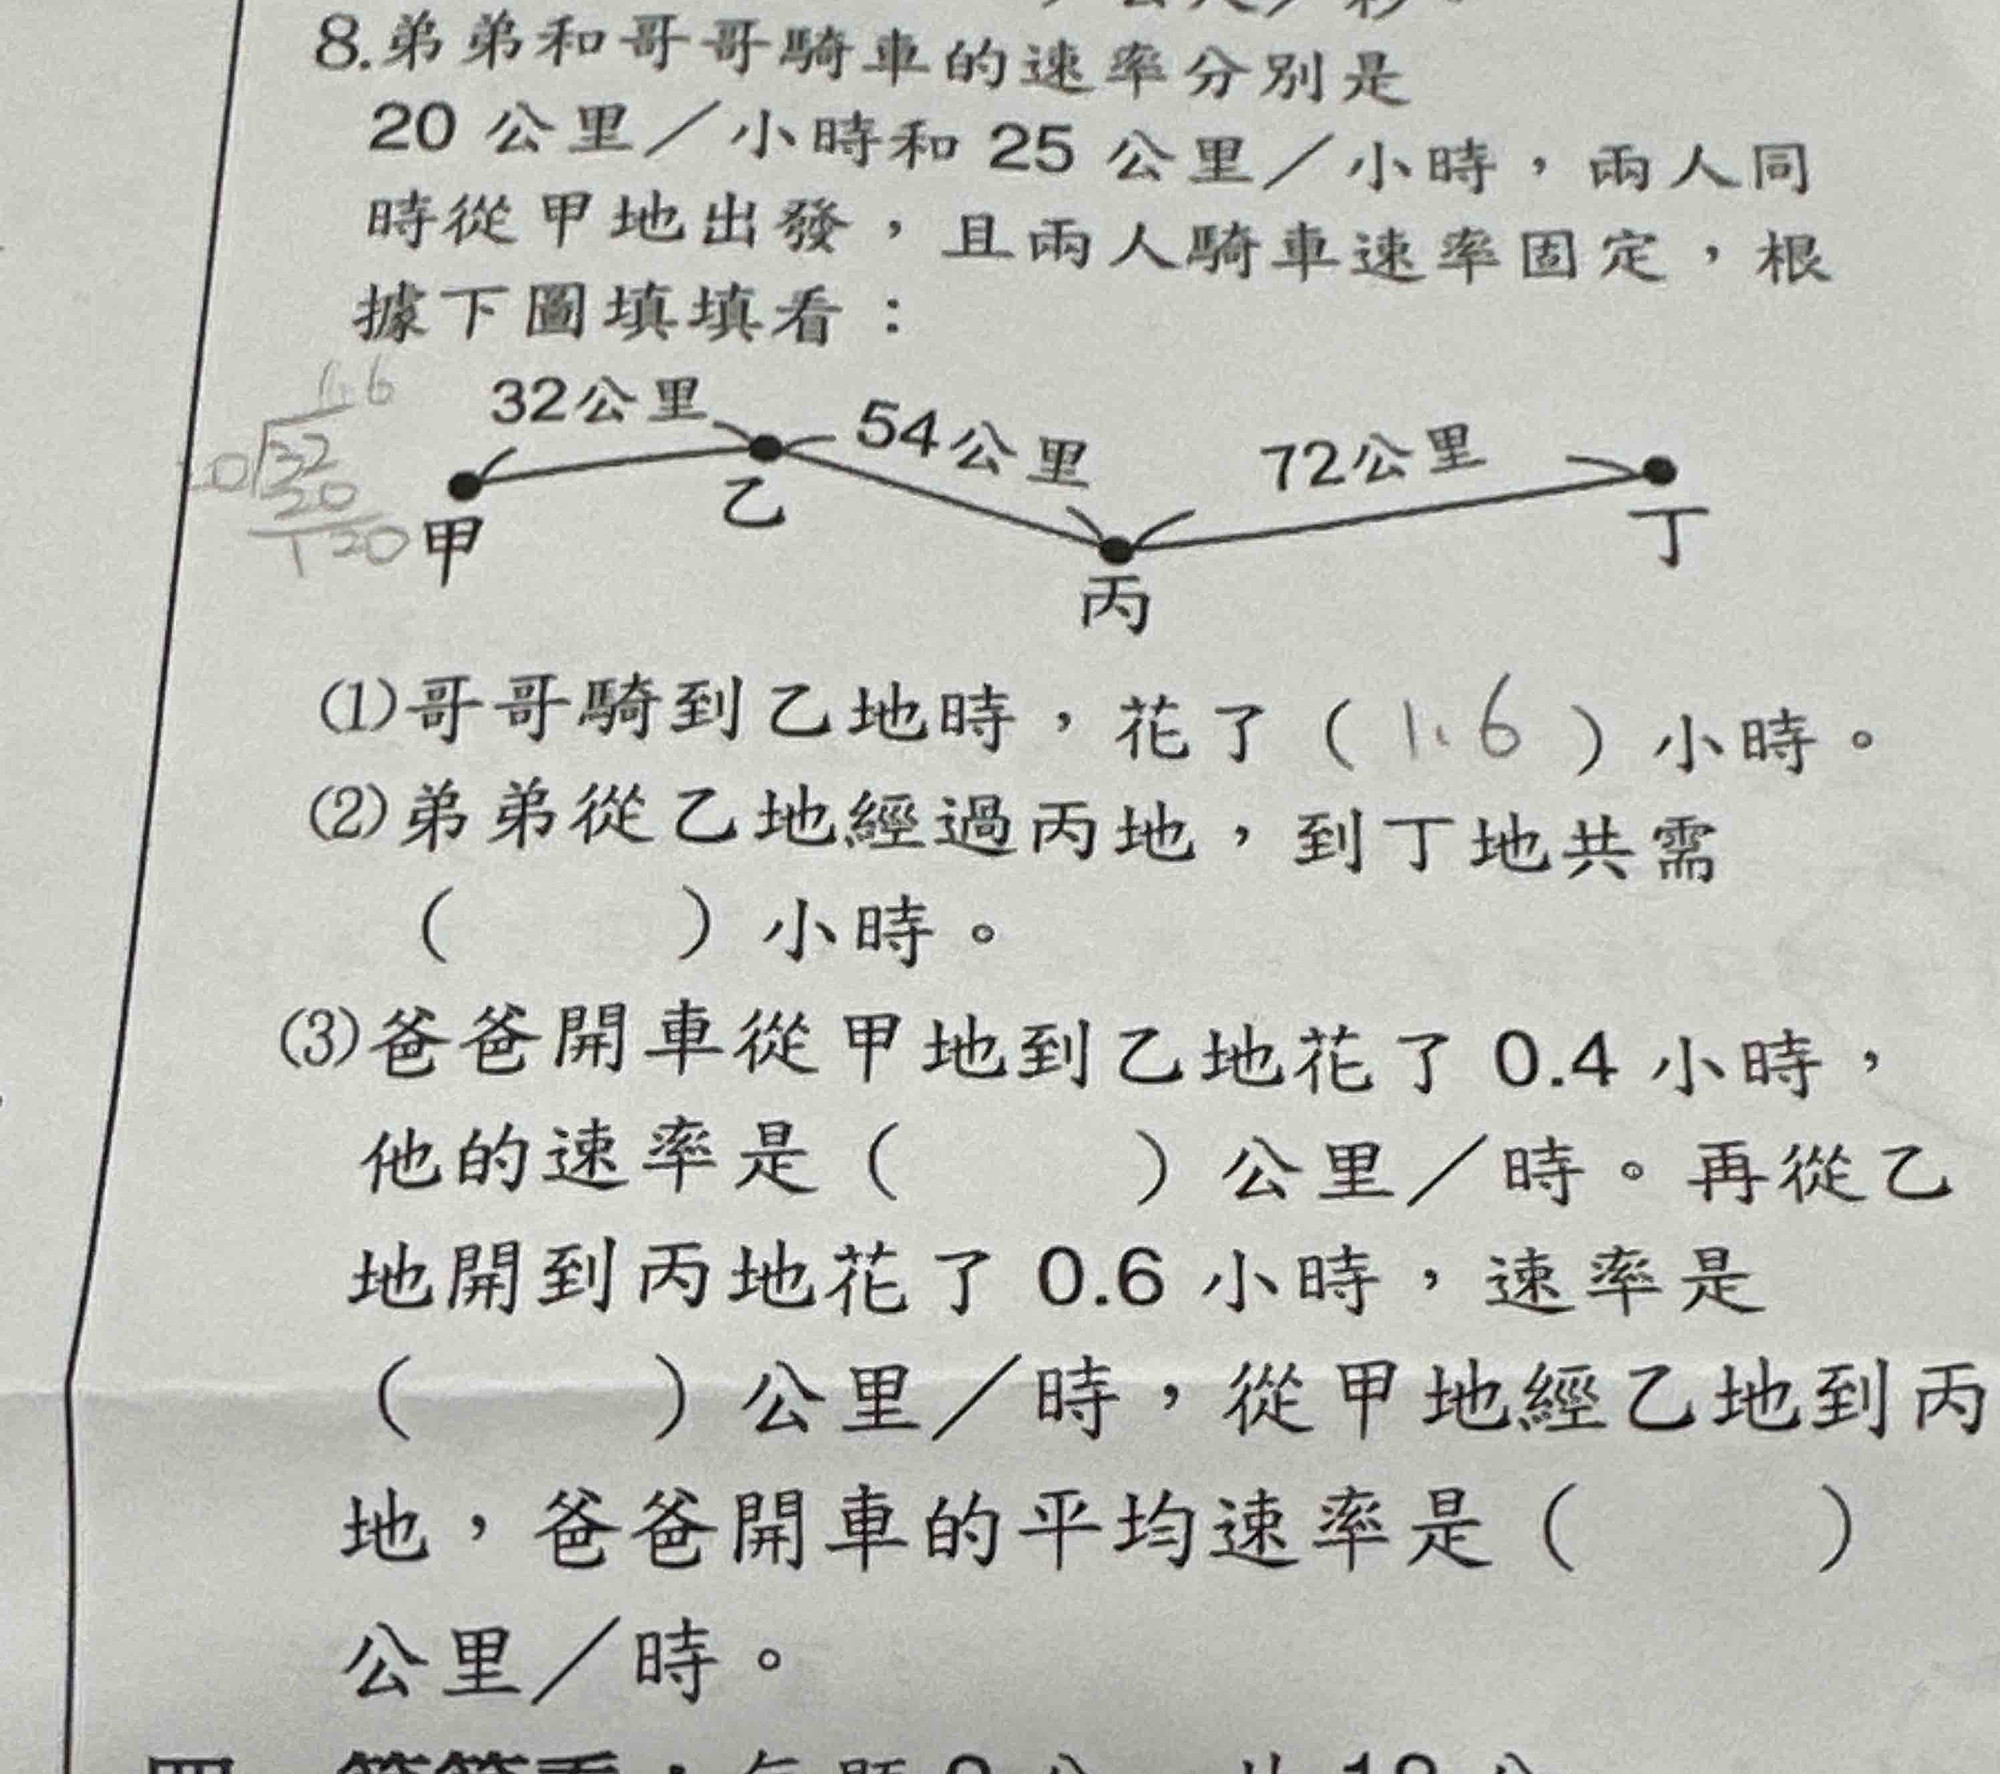 8.弟弟和哥哥騎車的速率分別是
20 公里／小時和 25 公里／小時，兩人同
時從甲地出發，且兩人騎車速率固定，根
據下圖填填看：
1.6
20 32
20
120
32公里
54公里
72公里
甲
乙
丙
丁
⑴哥哥騎到乙地時，花了（ 1.6 ）小時。
⑵弟弟從乙地經過丙地，到丁地共需
（　　）小時。
⑶爸爸開車從甲地到乙地花了 0.4 小時，
他的速率是（　　）公里／時。再從乙
地開到丙地花了 0.6 小時，速率是
（　　）公里／時，從甲地經乙地到丙
地，爸爸開車的平均速率是（　　）
公里／時。